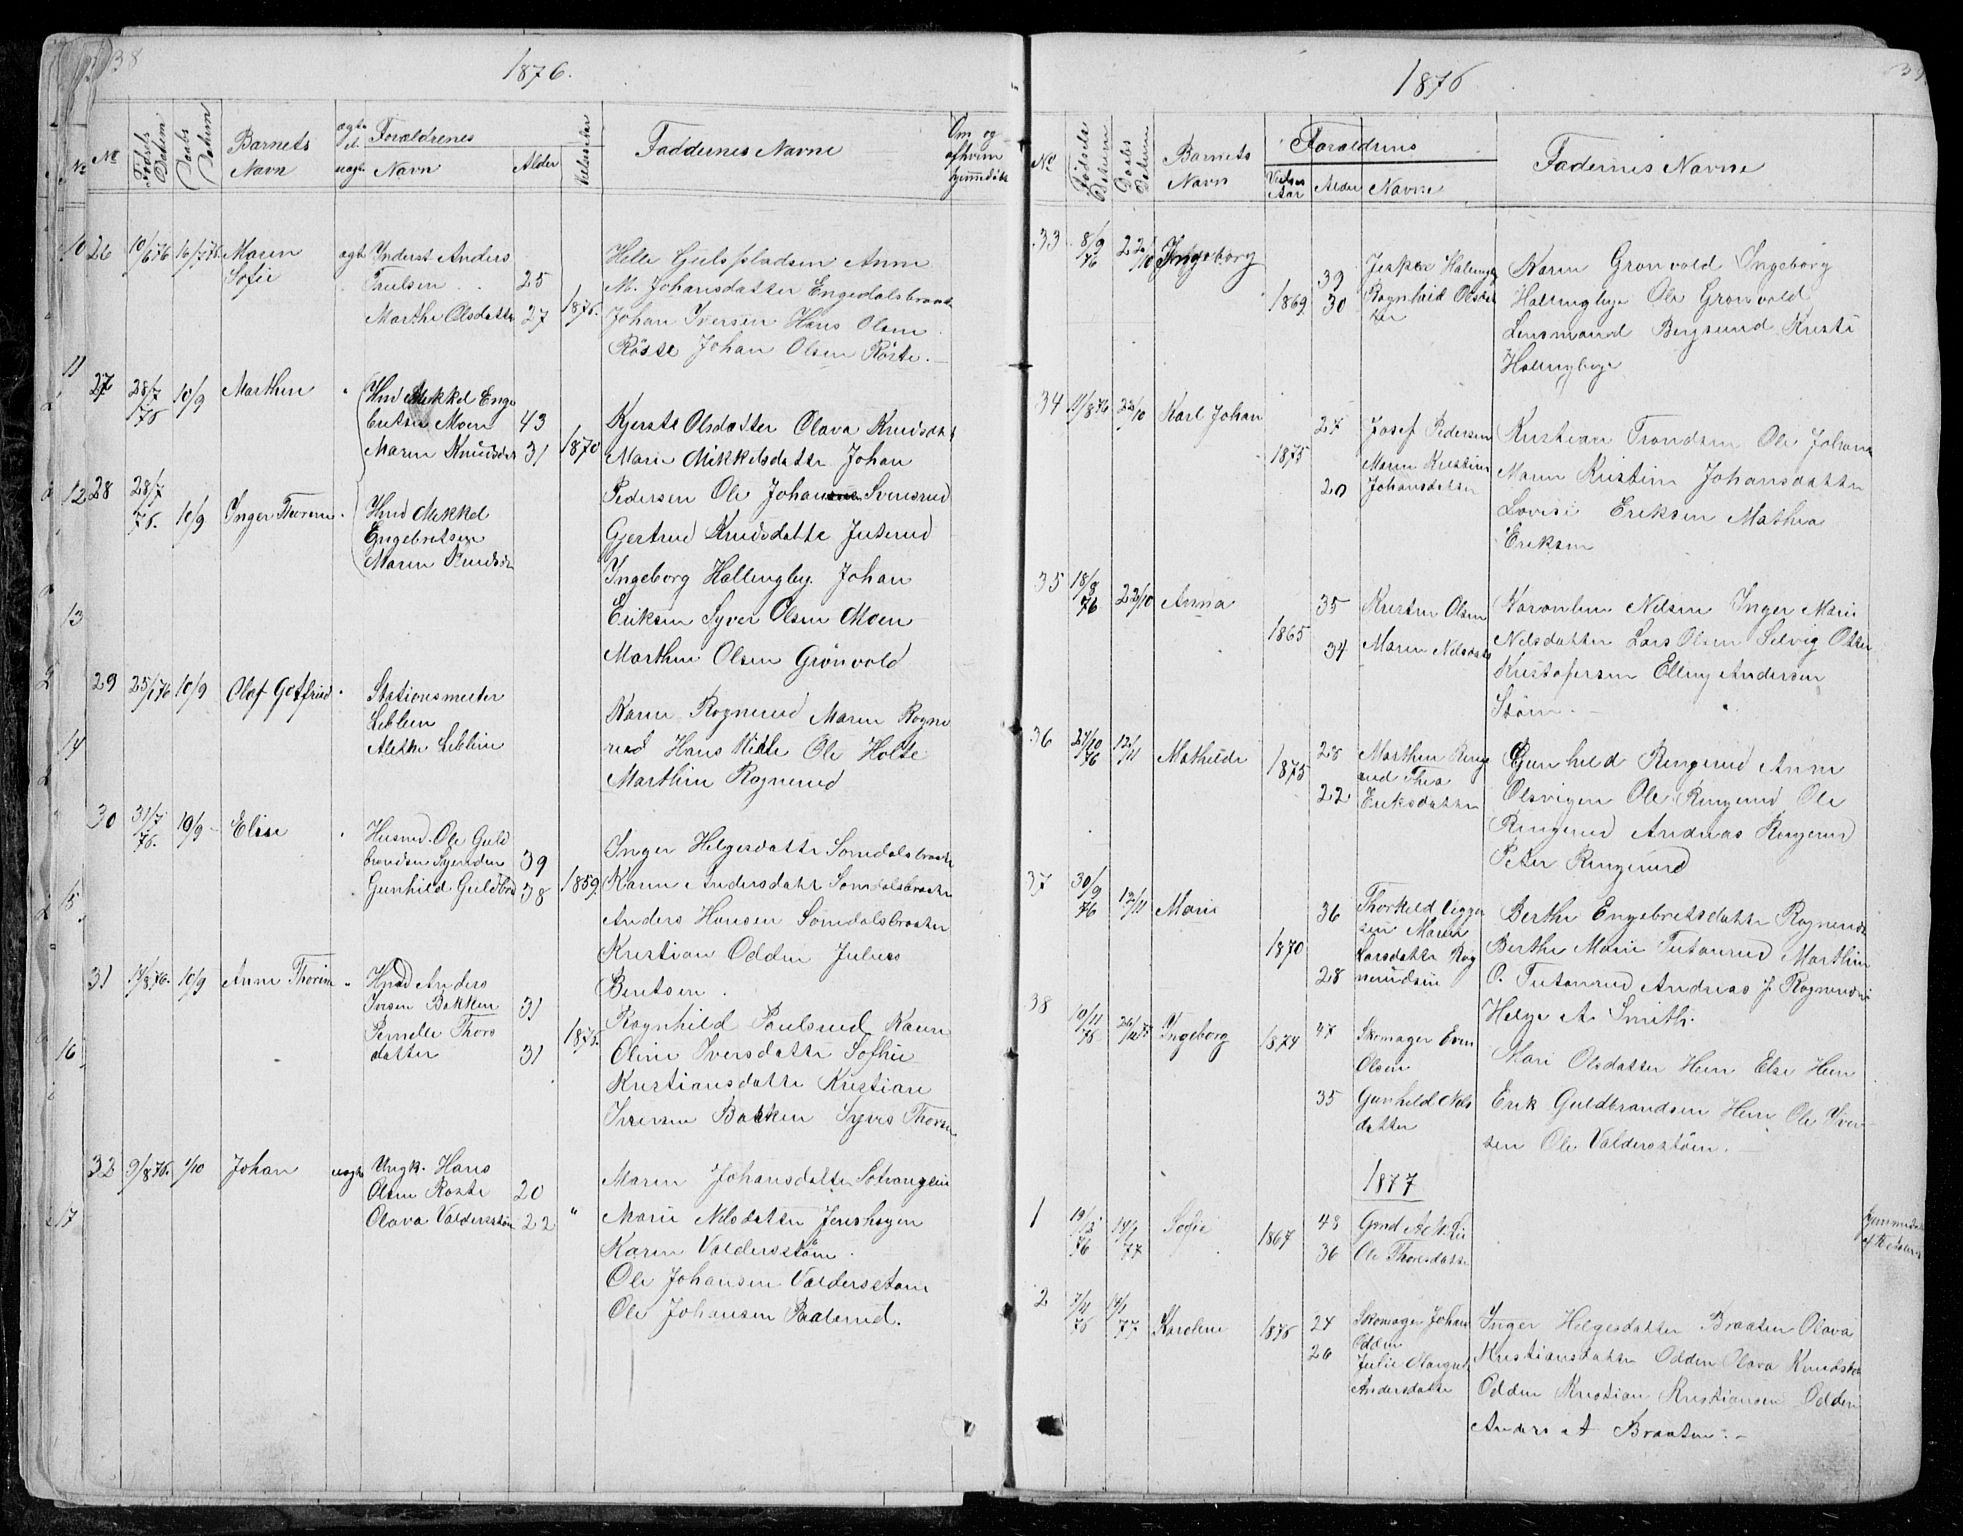 38
1876.
No
Fødsels Datum
Daabs Datum
Barnets Navn
ægte el. uægte
Forældrenes Navn
Alder
Vielses aar
Faddernes Navne
Om og af hvem hjemmedøbt
26 10/6 76 16/7 76 Maren ægt Inderst Anders
Sofie Paulsen 25
Marthe Olsdatter 27 1876.
Helle Gulspladsen Anne
M. Johansdatter Engedalsbraat
Johan Iversen Hans Olsen
Røste Johan Olsen Røste.
27 28/7 76 10/9 Marthin " Hmd Mekkel Enge
britsen Moen 43
Maren Knudsdr 31 1870
Kjersti Olsdatter Olava Knudsdat
Marie Mikkelsdatter Johan
28 28/7 76. 10/9 Inger Thorine " Hmd Mekkel
Engebretsen
Maren Knudsdr
Pedersen Ole Johansen Svensrud
Gjertrud Knudsdatter Juterud
Ingeborg Hallingby. Johan
Eriksen Syver Olsen Moen
Marthin Olsen Grønvold
29 25/6 76 10/9 Olaf Gotfried " Stationsmester
Leblein
Alethe Leblein
Karen Rognerud Maren Rogne
rud Hans Ole Holte
Marthin Rognerud
30 31/7 76. 10/9 Elise " Husmd. Ole Guld
brandsen 39
Gunhild Guldbr 38 1859.
Inger Helgesdatter Somdalsbraate
Karen Andersdatter Somdalsbraate
Anders Hansen Somdalsbraaten
Kristian Odden Julius
Berntsen.
31 17/8 76. 10/9 Anne Thorine " Hmd Anders
Iversen Bakken 31
Pernelle Thors
datter 31 1875.
Ragnhild Paulsrud Karen
Oline Iversdatter Sofhie
Kristiansdatter Kristian
Iversen Bakken Syver Thorsen
32 9/8 76. 1/10 Johan uægt Ungk. Hans
Olsen Røste 20
Olava Valdersstøen 22 "
Maren Johansdatter
Marie Nilsdatter
Karen Valdersstøen.
Ole Johansen Valdersstøen
Ole Johansen Paalerud.
10
11
12
13
14
15
16
17
39
1876
No
Fødsels Datum
Daabs Datum
Barnets Navn
Forældrene
Vielses Aar
Alder
Navne
Fadernes Navne
33 8/9 76 22/10 Ingeborg 1869 39 Jesper Hallingby
30 Ragnhild Olsdat
ter
Karen Grønvold Ingeborg
Hallingbye Ole Grønvold
Lensmand Bergsund Kristi
Hallingbye
34 11/8 76 22/10 Karl Johan 1875 27 Josef Pedersen
Maren Kristine
20 Johansdatter
Kristian Trondsen Ole Johans
Maren Kristine Johansdatter
Lovise Eriksen Mathea
Eriksen
35 18/9 76 22/10 Anna 1865 35 Kristen Olsen
34 Maren Nilsdatter
Karoline Nilsen Inger Marie
Nilsdatter Lars Olsen Selvig
Kristofersen Elling Andersen
Støen.
36 27/10 76 12/11 Mathilde 1875 28 Marthin Ringe
rud Thea
22 Eriksdatter
Gunhild Ringerud Anne
Olsvigen Ole Ringerud Ole
Ringerud Andreas Ringerud
Peter Ringerud
37 30/9 76 12/11 Marie 1870 36 Thorkild Vigger
sen Maren
Larsdatter Rog
28 nerudseie
Berthe Engebretsdatter Rognerud
Berthe Marie Tutanrud Marthin
O. Tutanrud Andreas J. Rognerud
Helge A. Smith.
38 19/11 76 26/12 76 Ingeborg 1874 47 Skomager Even
Olsen
35 Gunhild Nils
datter
Mari Olsdatter Hem Else Hem
Erik Guldbrandsen Hem Ole Iver
sen Ole Valdersstøen.
1877
1 19/12 76 14/1 77 Sofie 1867 48 Gmd A. N. Lie
36 Ole Thoresdatter
hjemmedøbt
2 7/11 76 14/1 77 Karoline 1876 24 Skomager Johan
Odden
26 Julie Margret
Andersdatter
Inger Helgesdatter Braaten Olava
Kristiansdatter Odden Olava Knudsdatter
Odden Kristian Kristiansen Odden
Anders A Braaten.